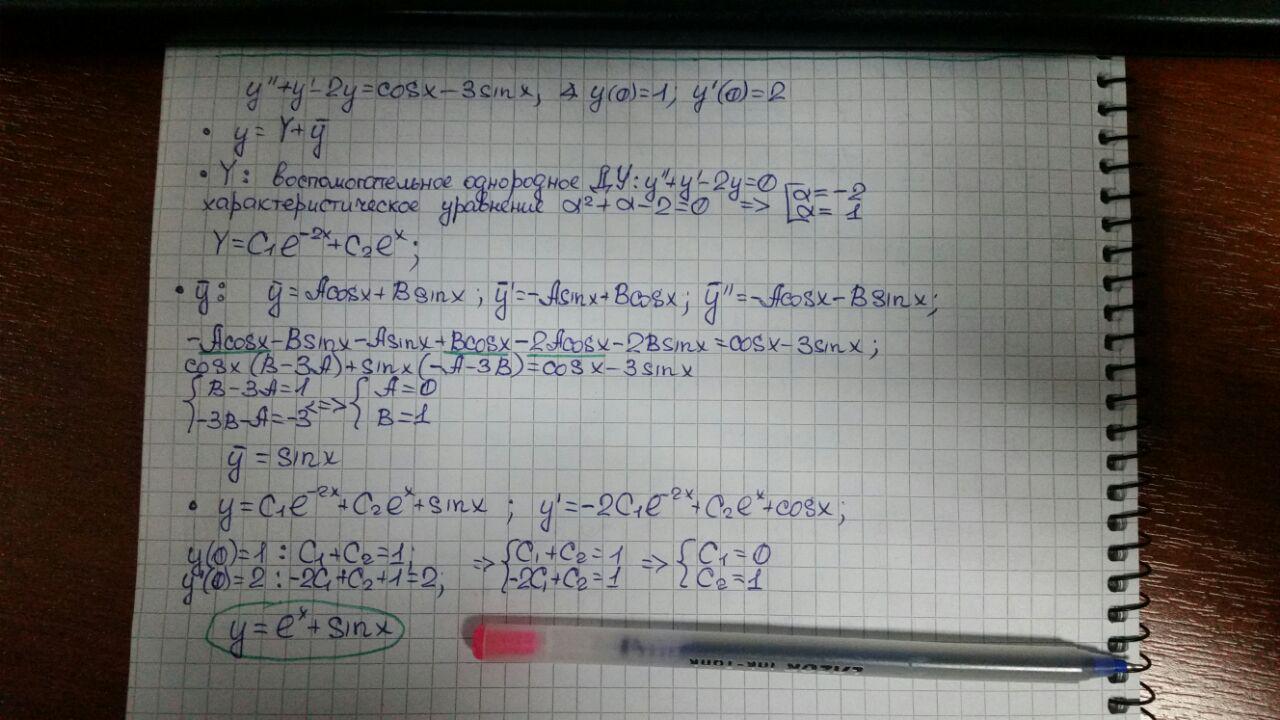 y''+y'-2y=cosx-3sinx, y(0)=1; y'(0)=2
• y=Y+ȳ
• Y: воспомогательное однородное ДУ: y''+y'-2y=0
характеристическое уравнение α²+α-2=0 => [α=-2 α=1
Y=C₁e^{-2x}+C₂e^x;
• ȳ: ȳ=Acosx+Bsinx; ȳ'=-Asinx+Bcosx; ȳ''=-Acosx-Bsinx;
-Acosx-Bsinx-Asinx+Bcosx-2Acosx-2Bsinx=cosx-3sinx;
cosx(B-3A)+sinx(-A-3B)=cosx-3sinx
{B-3A=1 -3B-A=-3 <=> {A=0 B=1
ȳ=sinx
• y=C₁e^{-2x}+C₂e^x+sinx; y'=-2C₁e^{-2x}+C₂e^x+cosx;
y(0)=1: C₁+C₂=1; => {C₁+C₂=1 => {C₁=0
y'(0)=2: -2C₁+C₂+1=2; -2C₁+C₂=1 C₂=1
y=e^x+sinx